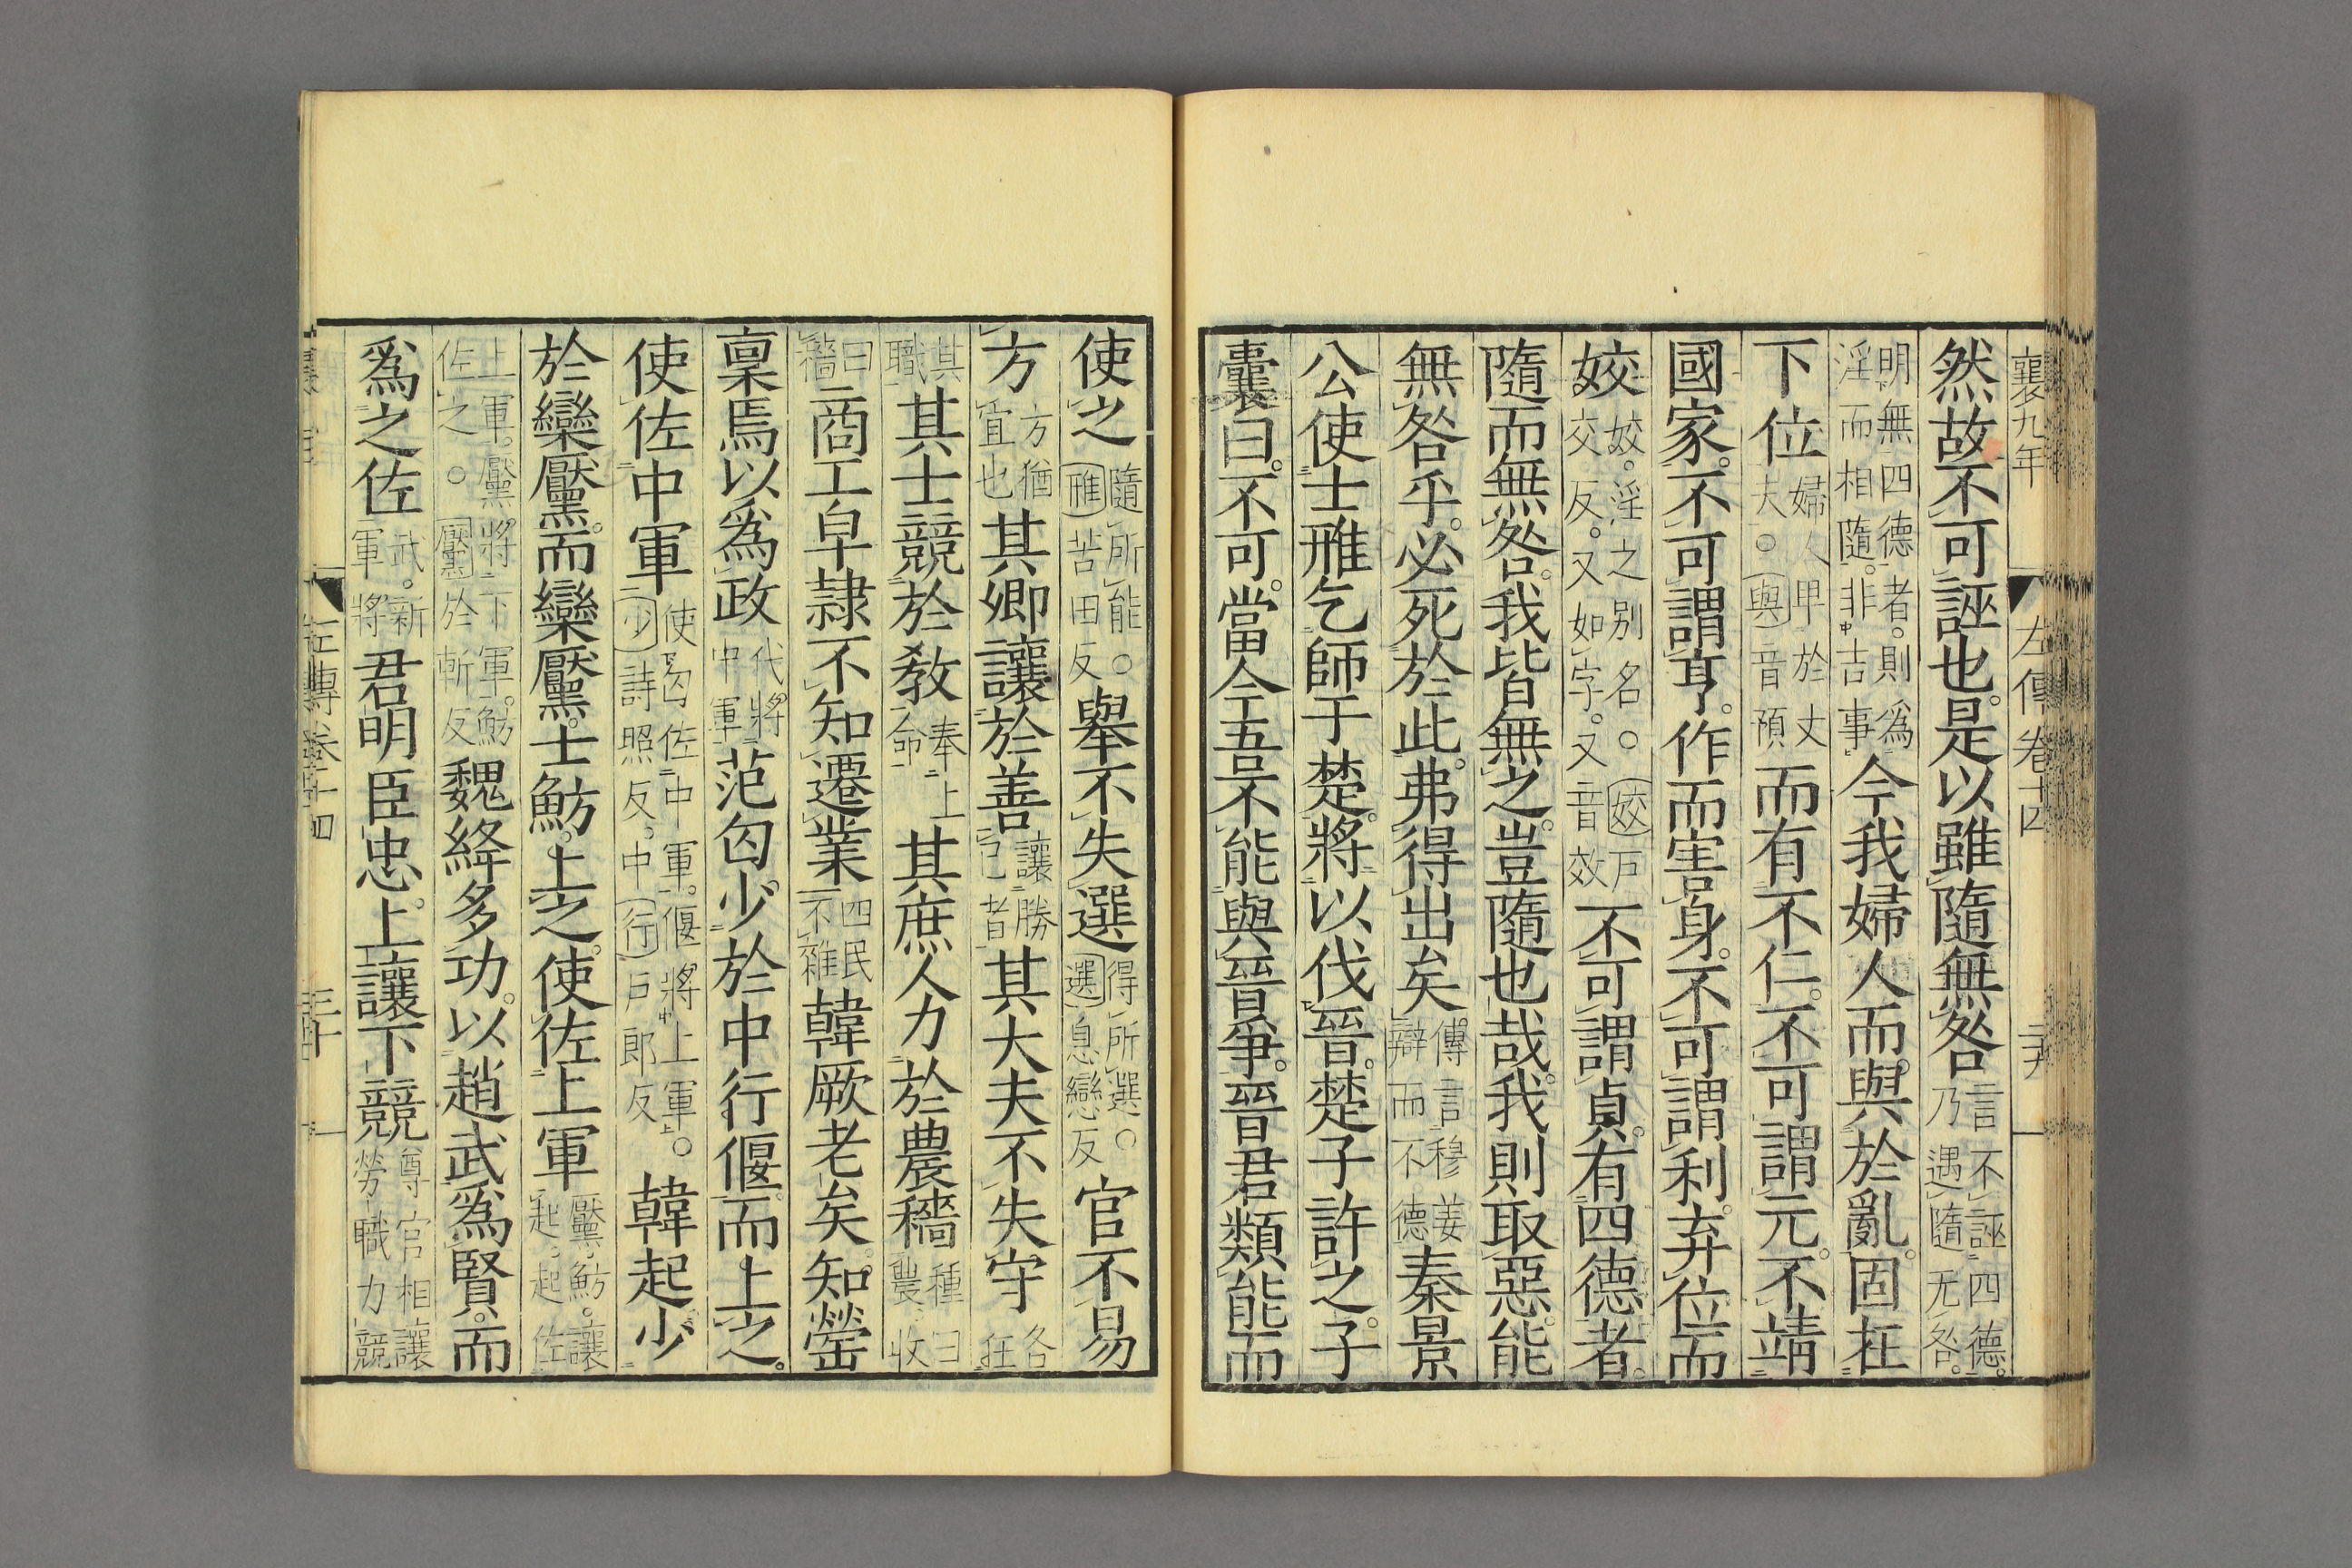 襄九年 左傳卷十四 二十九
然故不可誣也是以雖隨無咎言不誣四德乃遇隨无咎
明無四德者則爲淫而相隨非吉事今我婦人而與於亂固在
下位婦人卑於丈夫○與音預而有不仁不可謂元不靖
國家不可謂亨作而害身不可謂利弃位而
姣姣淫之別名○姣戶交反又如字又音效不可謂貞有四德者
隨而無咎我皆無之豈隨也哉我則取惡能
無咎乎必死於此弗得出矣傳言穆姜辯而不德秦景
公使士雃乞師于楚將以伐晉楚子許之子
囊曰不可當今吾不能與晉爭晉君類能而
使之隨所能○雃苦田反舉不失選得所選○選息戀反官不易
方方猶宜也其卿讓於善讓勝己者其大夫不失守各在
其職其士競於教奉上命其庶人力於農穡種曰農收
曰穡商工皁隷不知遷業四民不雜韓厥老矣知罃
稟焉以爲政代將中軍范匄少於中行偃而上之
使佐中軍使匄佐中軍偃將上軍○少詩照反中行戶郎反韓起少
於欒黶而欒黶士魴上之使佐上軍黶魴讓起起佐
上軍黶將下軍魴佐之○黶於斬反魏絳多功以趙武爲賢而
爲之佐武新軍將君明臣忠上讓下競尊官相讓勞職力競
左傳卷十四 三十